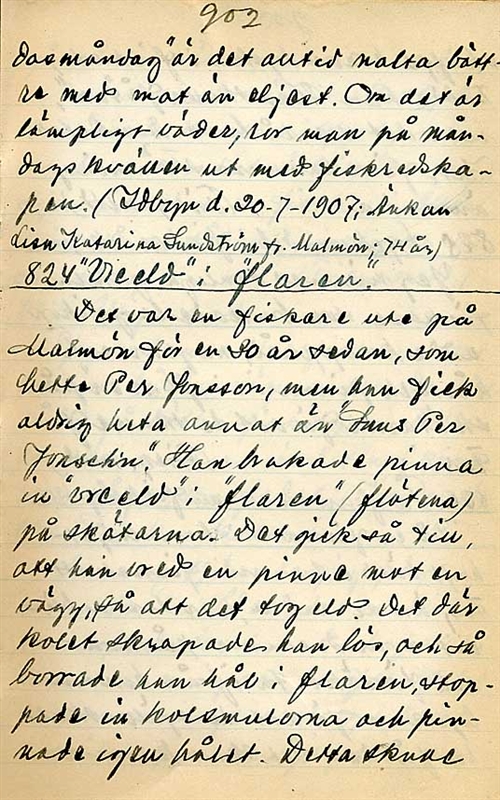 902
dasmåndag" är det alltid nalta bätt-
re med mat än eljest. Om det är
lämpligt väder, ror man på mån-
dagskvällen ut med fiskredska-
pen. (Idbyn d. 20-7-1907; Änkan
Lisa Katarina Sundström fr. Malmön; 74 år)
824 "Vreeld" i "flaren".
Det var en fiskare ute på
Malmön för en 20 år sedan, som
hette Per Jonsson, men han fick
aldrig heta annat än "Snus Per
Jonschn". Han brukade pinna
in "vreeld" i "flaren" (flötena)
på skötarna. Det gick så till,
att han vred en pinne mot en
vägg, så att det tog eld. Det där
kolet skrapade han lös, och så
borrade han hål i flaren, stop-
pade in kolsmulorna och pin-
nade igen hålet. Detta skulle